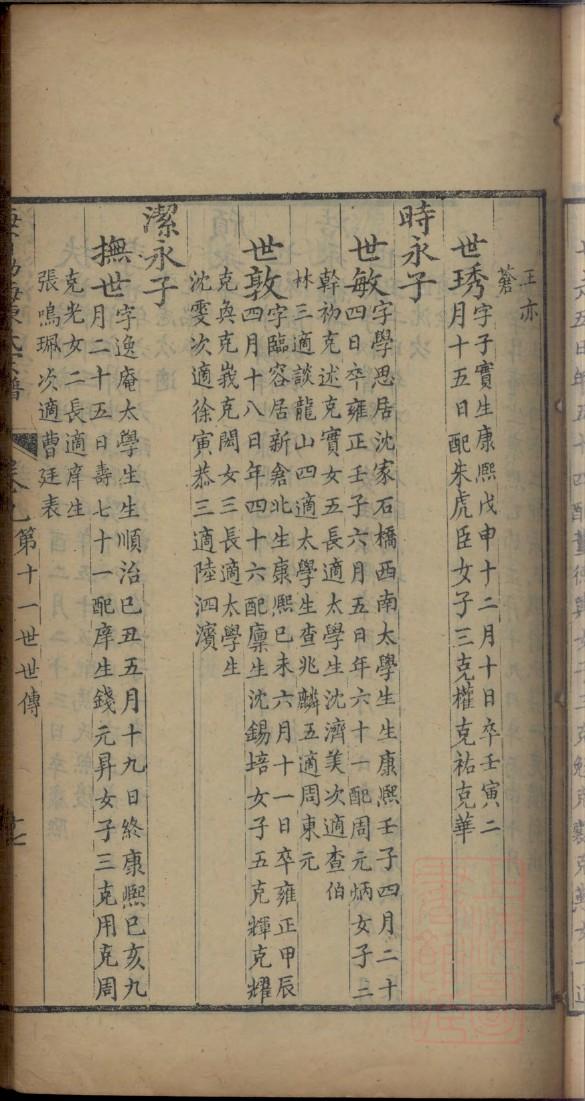 王亦
蒼
世琇
字子實生康熙戊申十二月十日卒壬寅二
月十五日配朱虎臣女子三克權克祐克華
時永子
世敏
字學思居沈家石橋西南太學生生康熙壬子四月二十
四日卒雍正壬子六月五日年六十一配周元炳女子三
幹初克述克實女五長適太學生沈濟美次適查伯
林三適談龍山四適太學生查兆麟五適周東元
世敦
字臨容居新倉北生康熙己未六月十一日卒雍正甲辰
四月十八日年四十六配廩生沈錫培女子五克輝克耀
克奐克峩克閎女三長適太學生
沈雯次適徐寅恭三適陸泗濱
潔永子
撫世
字逸庵太學生生順治己丑五月十九日終康熙己亥九
月二十五日壽七十一配庠生錢元昇女子三克用克周
克光女二長適庠生
張鳴珮次適曹廷表
卷九 第十一世世傳